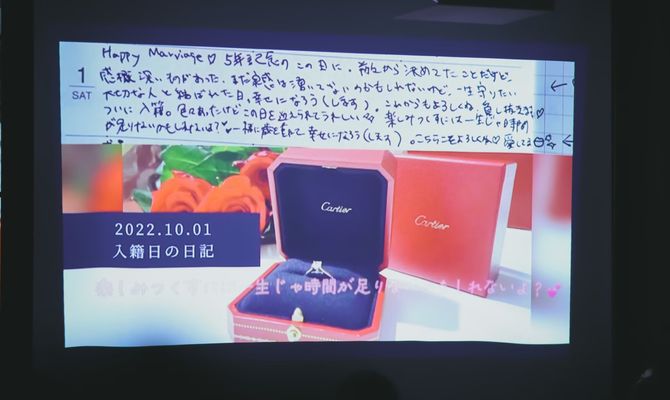 Happy Marriage♡ 5年記念の この日に、前から決めてたことだけど
感慨深いものがあった。まだ実感は湧いてないのかもしれないけど、一生守りたい
大切な人と結ばれた日。幸せになろう(します)。これからもよろしくね。
ついに入籍。色々あったけどこの日を迎えられてうれしい 楽しみつくすには一生じゃ時間
が足りないかもしれないよ?一緒に歳をとって幸せになろう(します)。こちらこそよろしくね♡ 愛してる
1
SAT
Cartier
Cartier
2022.10.01
入籍日の日記
楽しみつくすには一生じゃ時間が足りないかもしれないよ?